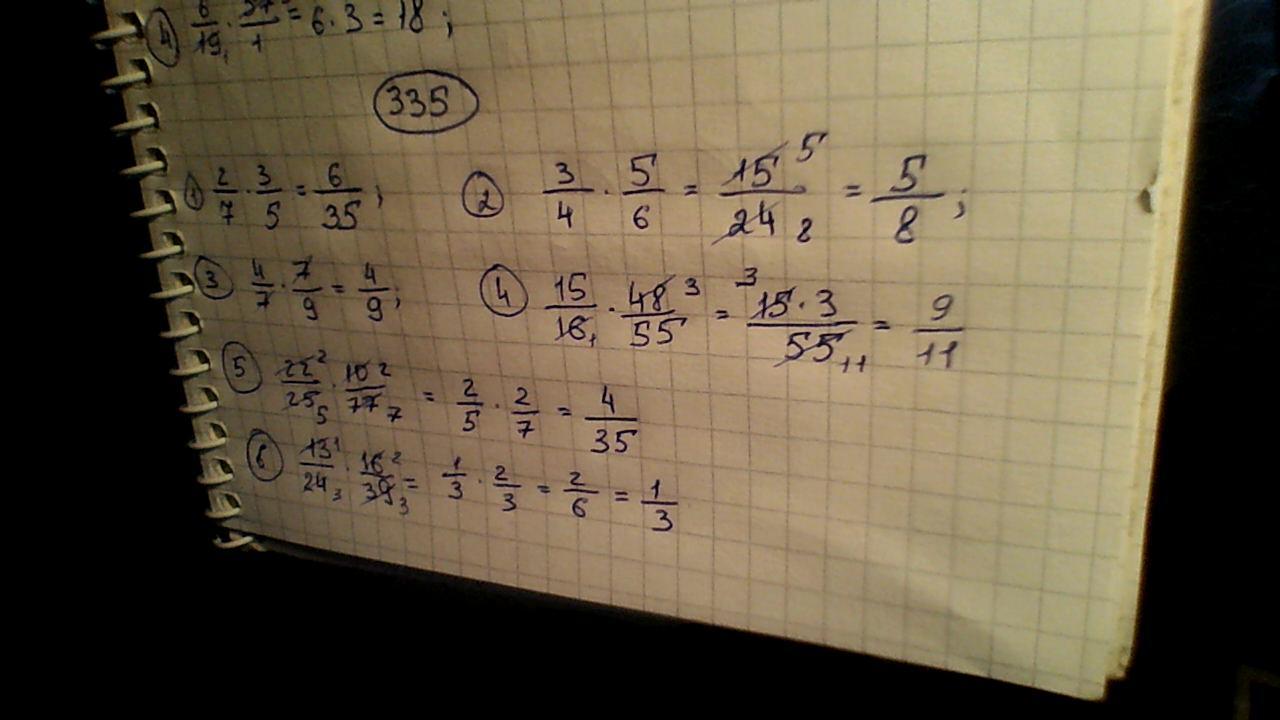 4) 6/19 1 · 57/1 = 6 · 3 = 18 ;
335
1) 2/7 · 3/5 = 6/35 ; 2) 3/4 · 5/6 = 15 5/24 8 = 5/8 ;
3) 4/7 · 7/9 = 4/9 ; 4) 15/16 1 · 48 3/55 = 3 15 · 3/55 11 = 9/11
5) 22 2/25 5 · 10 2/77 7 = 2/5 · 2/7 = 4/35
6) 13 1/24 3 · 16 2/39 3 = 1/3 · 2/3 = 2/6 = 1/3